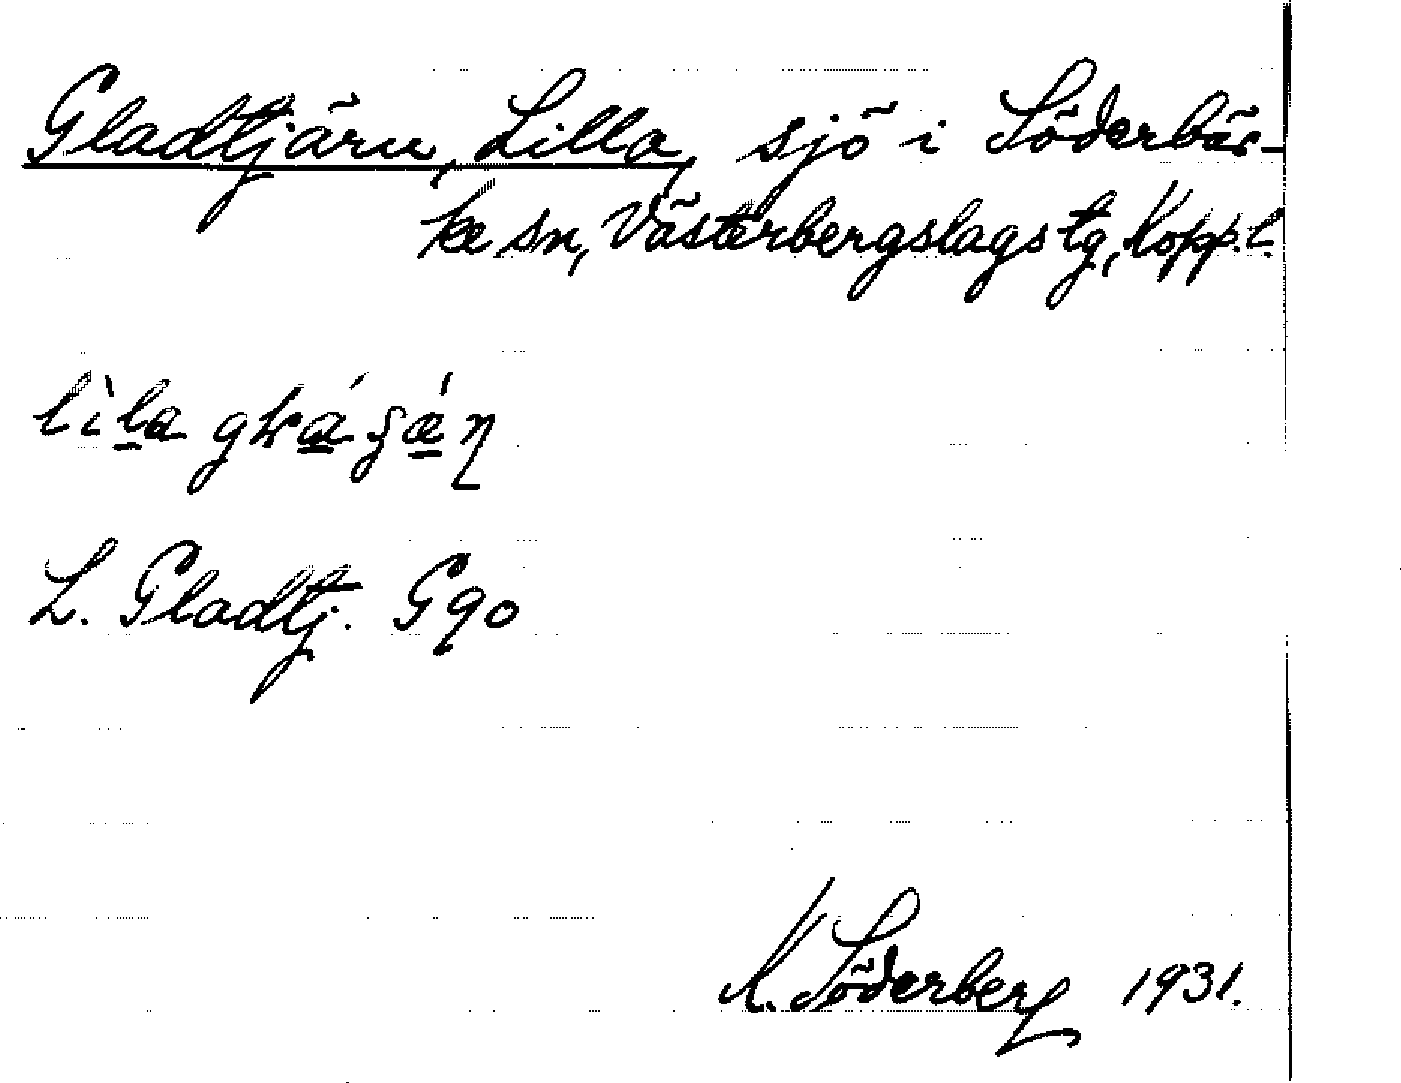 Gladtjärn, Lilla, sjö i Söderbär-
ke sn, Västerbergslags tg, Kopp. l.
lìla
L. Gladtj. G90
K. Söderberg 1931.